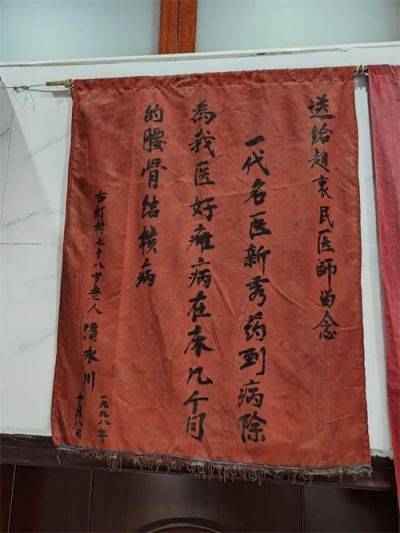 送给趙民医師留念
一代名医新秀药到病除
為我医好瘫病在床几个月
的腰骨结病
七十八岁老人 水川
一九九八年
月八日